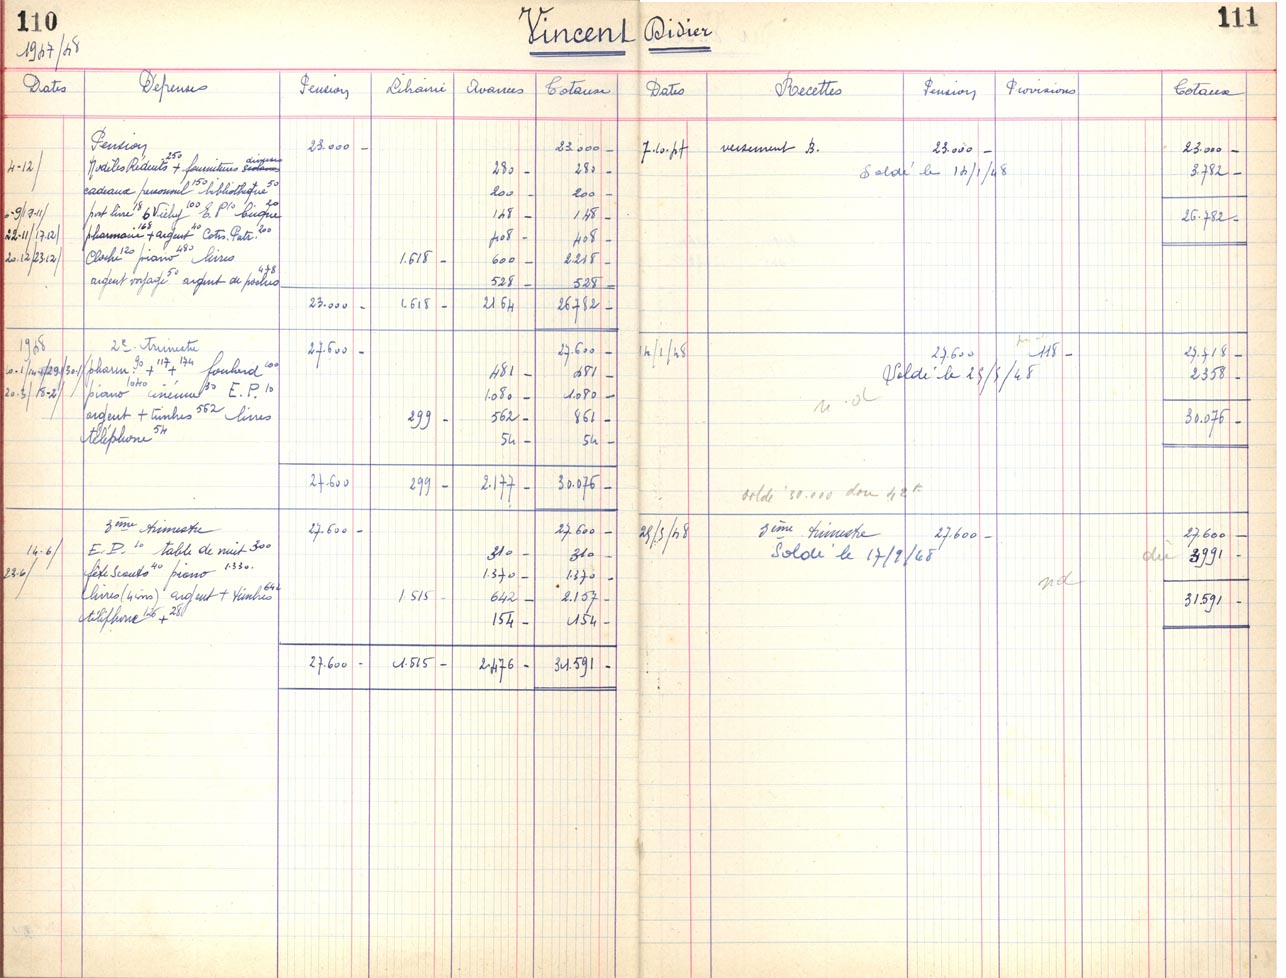 110
Vincent Didier
111
1947/48
Dates Dépenses Pension Librairie Avances Totaux Dates Recettes Pension Provisions Totaux
Pension 23.000 - 23.000 - 7.10.47 versement B. 23.000 - 23.000 -
4-12/ Rédents 250 + fournitures diverses 280 - 280 - Soldé le 14/1/48 3.782 -
cadeaux personnel 150 bibliothèque 50 200 - 200 -
port livre 18 6 Vichy 100 E.P 10 20 148 - 148 - 26.782 -
22-11/17.12/ pharmacie 168 + argent 40 Cotis. Patr. 200 408 - 408 -
20.12/23.12/ Cloche 120 piano 480 livres 1.618 - 600 - 2.218 -
argent voyage 50 argent de poches 478 528 - 528 -
23.000 - 1.618 - 2164 - 26782 -
1948 2e trimestre 27.600 - 27.600 - 14/1/48 27.600 118 - 27.718 -
pharm. 90 + 117 + 174 foulard 100 481 - 481 - Soldé le 25/3/48 2358 -
piano 1040 cinéma 30 E.P. 10 1.080 - 1.080 - n.d
argent + timbres 562 livres 299 - 562 - 861 - 30.076 -
téléphone 54 54 - 54 -
27.600 299 - 2.177 - 30.076 -
solde 30.000 don 42 F
3ème trimestre 27.600 - 27.600 - 25/3/48 3ème trimestre 27.600 - 27.600 -
14.6/ E.P. 10 table de nuit 300 310 - 310 - Soldé le 17/8/48 dû 3991 -
23.6/ fête Scouts 40 piano 1.330. 1.370 - 1.370 - nd
livres (4 ins) argent + timbres 642 1 515 - 642 - 2.157 - 31.591 -
téléphone 126 + 28 154 - 154 -
27.600 - 1.515 - 2.476 - 31.591 -